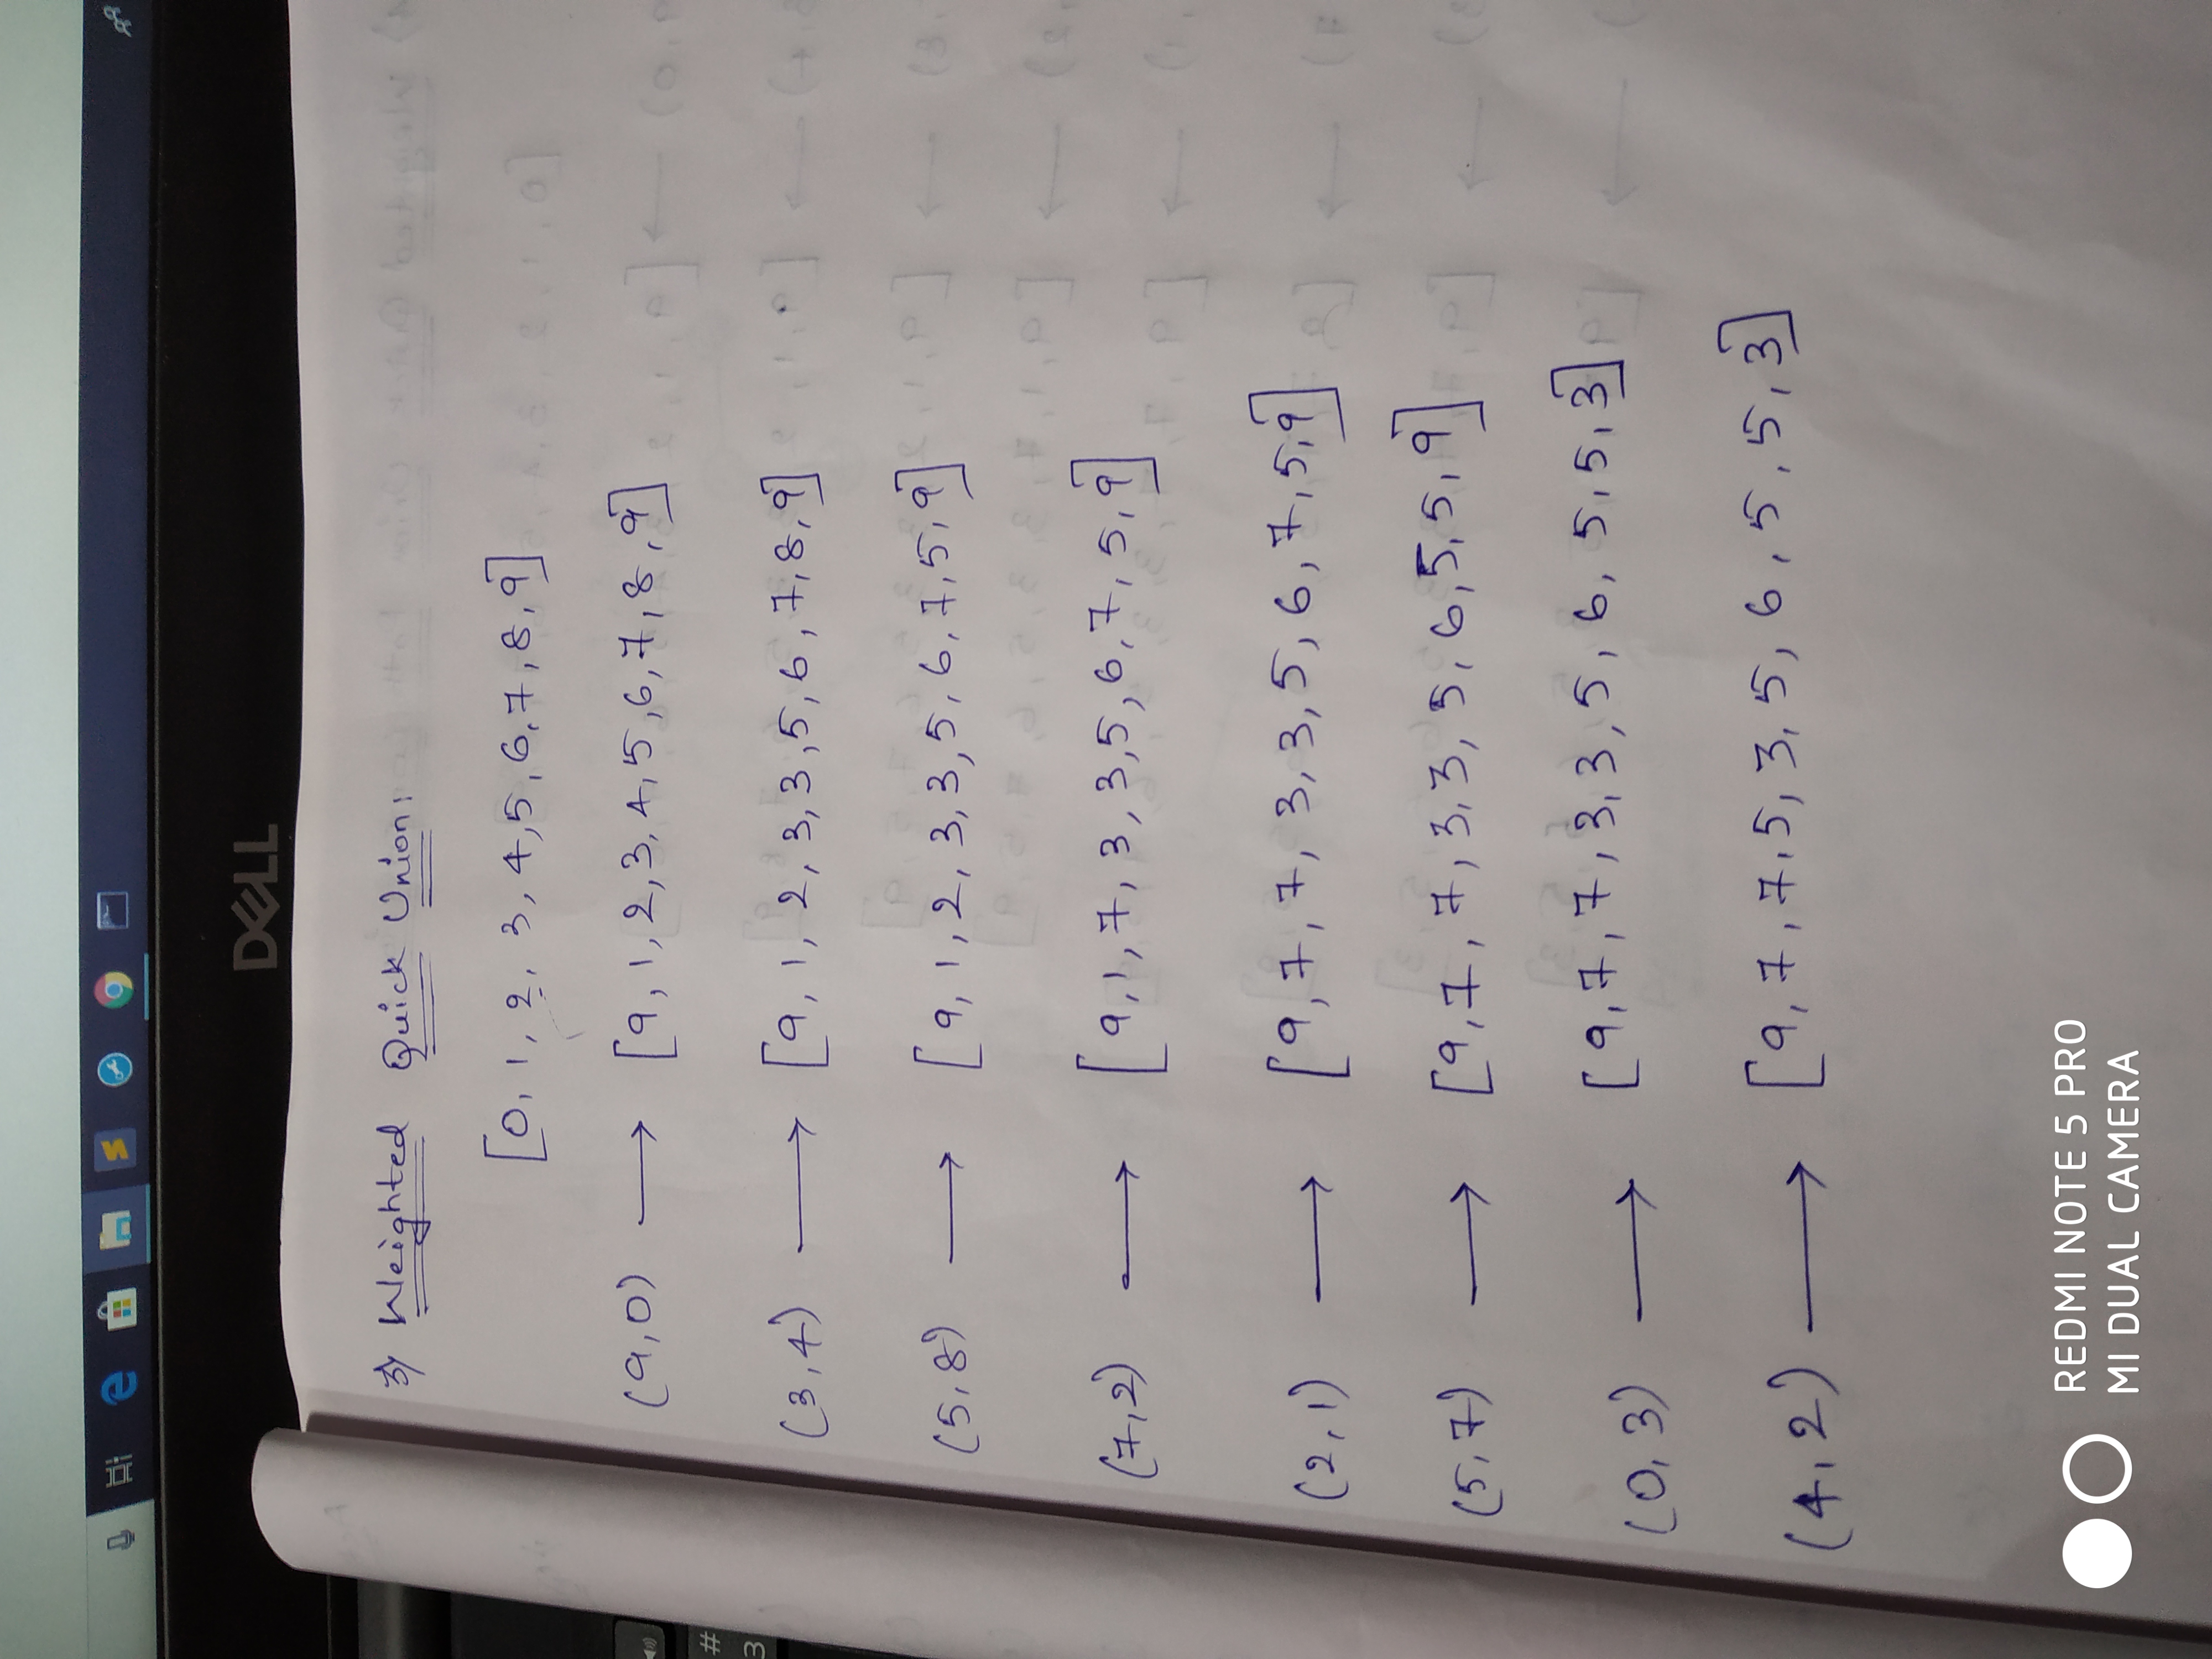 DELL
3) Weighted Quick Union:
[0, 1, 2, 3, 4, 5, 6, 7, 8, 9]
(9,0) → [9, 1, 2, 3, 4, 5, 6, 7, 8, 9]
(3,4) → [9, 1, 2, 3, 3, 5, 6, 7, 8, 9]
(5,8) → [9, 1, 2, 3, 3, 5, 6, 7, 5, 9]
(7,2) → [9, 1, 7, 3, 3, 5, 6, 7, 5, 9]
(2,1) → [9, 7, 7, 3, 3, 5, 6, 7, 5, 9]
(5,7) → [9, 7, 7, 3, 3, 5, 6, 5, 5, 9]
(0,3) → [9, 7, 7, 3, 3, 5, 6, 5, 5, 3]
(4,2) → [9, 7, 7, 5, 3, 5, 6, 5, 5, 3]
#
3
REDMI NOTE 5 PRO
MI DUAL CAMERA